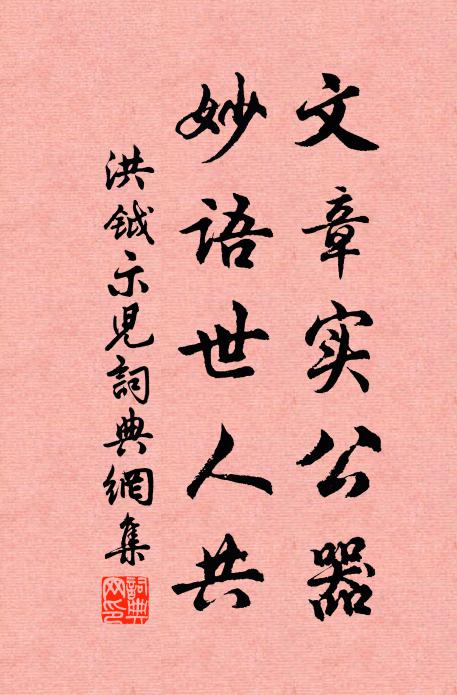 文章实公器
妙语世人共
洪钺示兒詞典網集
詞典網印